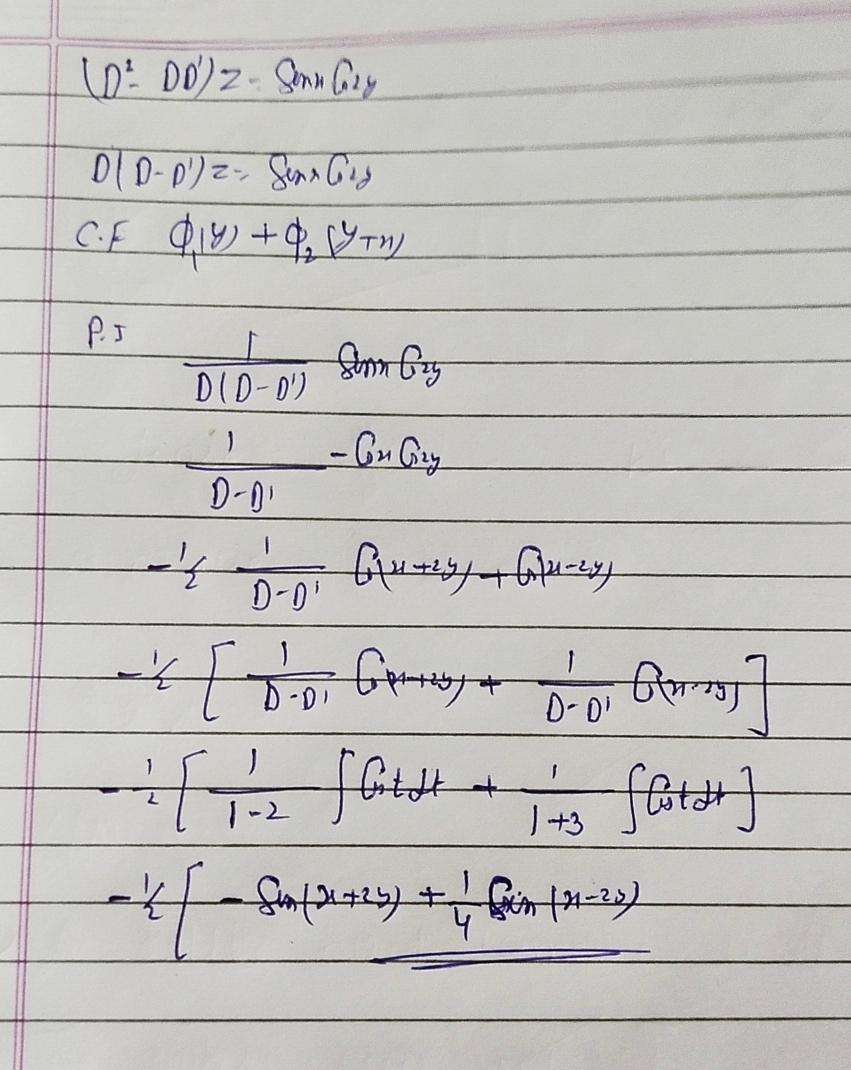 (D² - DD')z = Sinx Cos2y
D(D-D')z = Sinx Cos2y
C.F ϕ₁(y) + ϕ₂(y+x)
P.I 1/D(D-D') Sinx Cos2y
1/D-D' - Cosx Cos2y
-1/2 1/D-D' Cos(x+2y) + Cos(x-2y)
-1/2 [ 1/D-D' Cos(x+2y) + 1/D-D' Cos(x-2y) ]
-1/2 [ 1/1-2 ∫Cost dt + 1/1+3 ∫Cost dt ]
-1/2 [ - Sin(x+2y) + 1/4 Sin(x-2y)